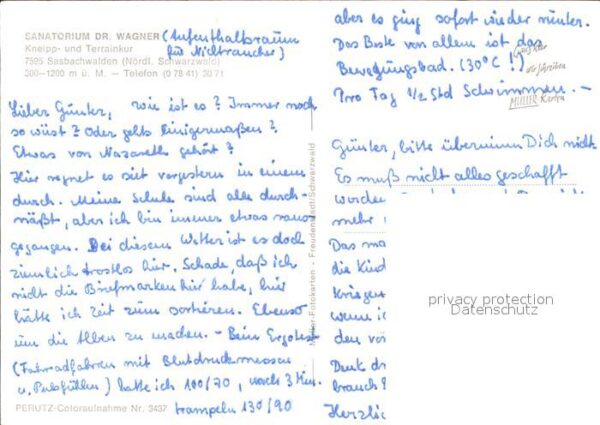 SANATORIUM DR. WAGNER (Aufenthaltsraum
Kneipp- und Terrainkur für Nichtraucher)
7595 Sasbachwalden (Nördl. Schwarzwald)
300–1200 m ü. M. – Telefon (0 78 41) 30 71
Lieber Günter, wie ist es? Immer noch
so wüst? Oder gehts einigermaßen?
Etwas von Nazareth gehört?
Hier regnet es seit vorgestern in einem
durch. Meine Schuhe sind alle durch-
näßt, aber ich bin immer etwas raus-
gegangen. Bei diesem Wetter ist es doch
ziemlich trostlos hier. Schade, daß ich
nicht die Briefmarken hier habe, hier
hätte ich Zeit zum sortieren. Ebenso
um die Alben zu machen. - Beim Ergotest
(Fahrradfahren mit Blutdruckmessen
u. Pulsfühlen) hatte ich 100/70, nach 3 Min.
trampeln 130/90
PERUTZ-Coloraufnahme Nr. 3437
Müller-Fotokarten - Freudenstadt/Schwarzwald
aber es ging sofort wieder runter.
Das Beste von allem ist das
Bewegungsbad. (30°C!)
Pro Tag 1/2 Std Schwimmen. -
MÜLLER Karten
Günter, bitte übernimm Dich nicht.
Es muß nicht alles geschafft
worden
mehr
Das
die Kind
kriegen
wenn
den
Denk
brauch
Herzlic
privacy protection
Datenschutz